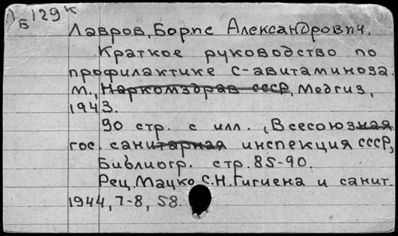 Л Б 129к
Лавров, Борис Александрович.
Краткое руководство по
профилактике С-авитаминоза.
М., Наркомздрав СССР, Медгиз,
1943.
90 стр. с илл. , Всесоюзная
гос. санитарная инспекция СССР,
Библиогр. стр. 85-90.
Рец. Мацко С.Н. Гигиена и санит.
1944, 7-8, 58.